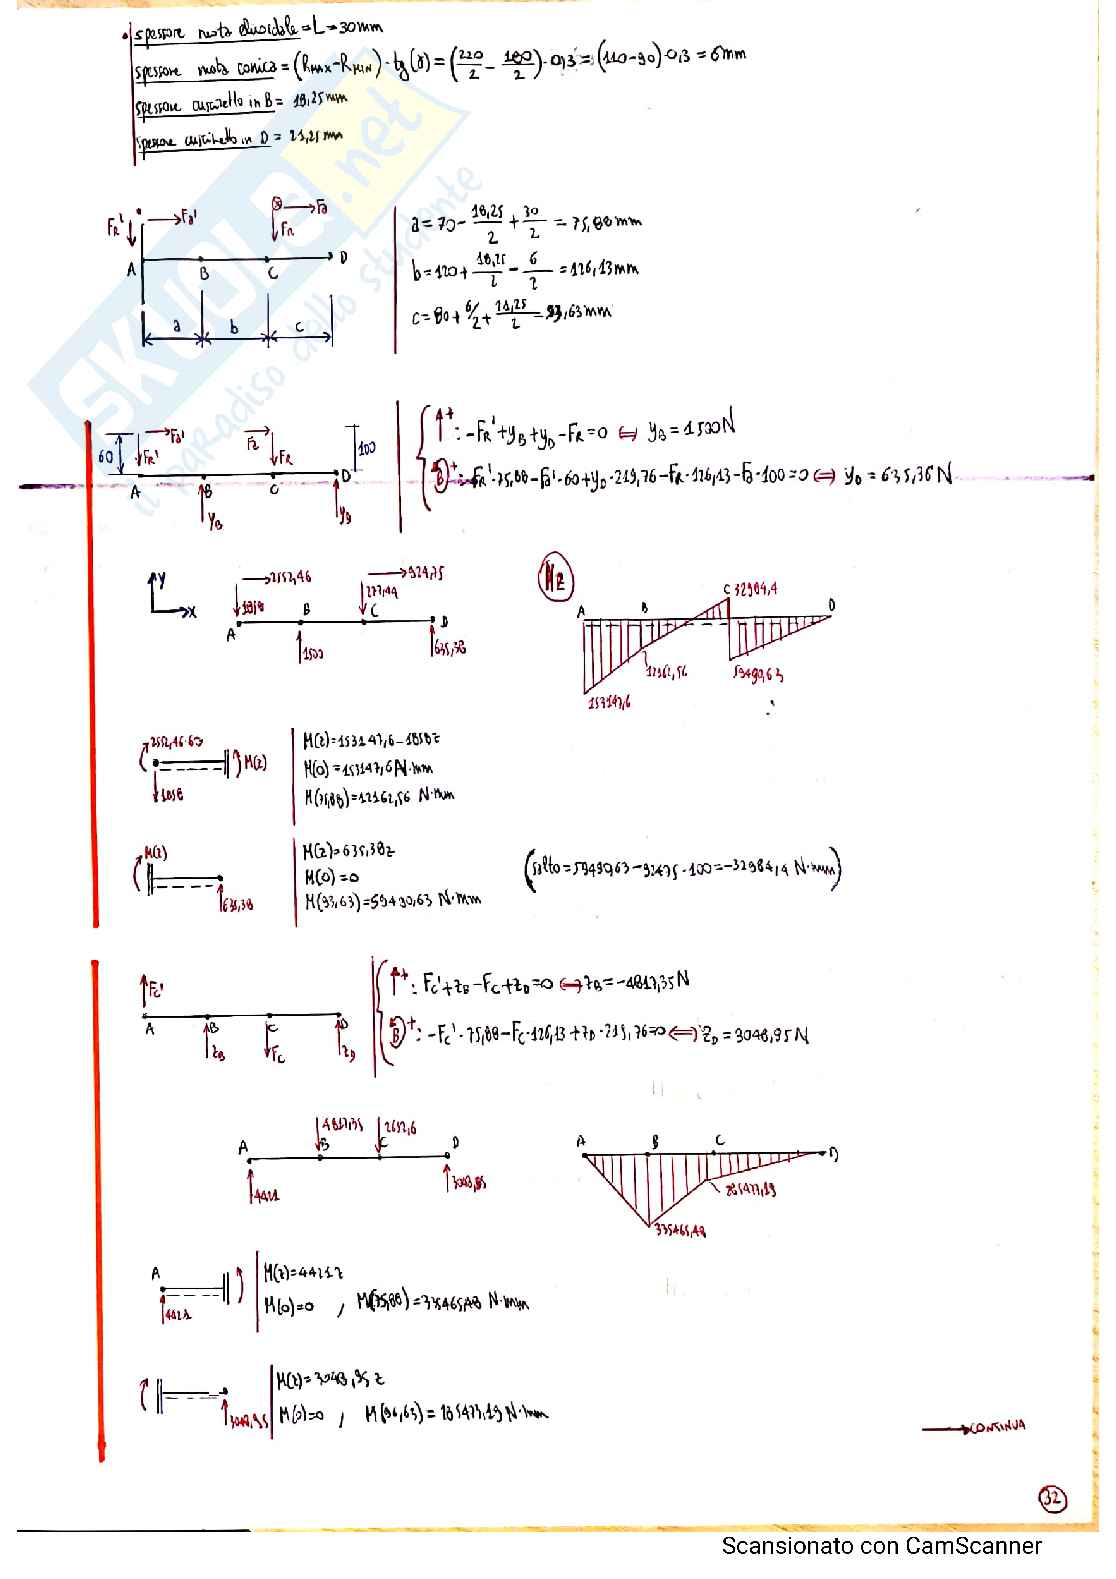 • spessore ruota elicoidale = L = 30 mm
spessore ruota conica = (RMAX - RMIN) · tg(γ) = (220/2 - 180/2) · 0,3 = (110-90) · 0,3 = 6 mm
spessore cuscinetto in B = 18,25 mm
spessore cuscinetto in D = 21,25 mm
FR' Fa' FR Fa
A B C D
a b c
a = 70 - 18,25/2 + 30/2 = 75,88 mm
b = 120 + 18,25/2 - 6/2 = 126,13 mm
c = 80 + 6/2 + 21,25/2 = 93,63 mm
60 Fa' FR' Fa FR 100
A B C D
YB YD
↑+: -FR' + YB + YD - FR = 0 ⇔ YB = 1500 N
B+: FR' · 75,88 - Fa' · 60 + YD · 219,76 - FR · 126,13 - Fa · 100 = 0 ⇔ YD = 635,38 N
Y X
2552,46 924,75
1858 277,44
A B C D
1500 635,38
Mz
A B C 32984,4 D
153147,6 12162,56 59490,63
2552,46·60 M(z)
1858
M(z) = 153147,6 - 1858z
M(0) = 153147,6 N·mm
M(75,88) = 12162,56 N·mm
M(z) 635,38
M(z) = 635,38z
M(0) = 0
M(93,63) = 59490,63 N·mm
(salto = 59490,63 - 924,75 · 100 = -32984,4 N·mm)
FC'
A B C D
ZB FC ZD
↑+: FC' + ZB - FC + ZD = 0 ⇔ ZB = -4817,35 N
B+: -FC' · 75,88 - FC · 126,13 + ZD · 219,76 = 0 ⇔ ZD = 3048,95 N
4817,35 2652,6
A B C D
4421 3048,95
A B C D
335465,48 285473,19
A
4421
M(z) = 4421z
M(0) = 0 , M(75,88) = 335465,48 N·mm
3048,95
M(z) = 3048,95 z
M(0) = 0 , M(93,63) = 285473,19 N·mm
→ CONTINUA
32
SKUOLA.net
il paradiso dello studente
Scansionato con CamScanner